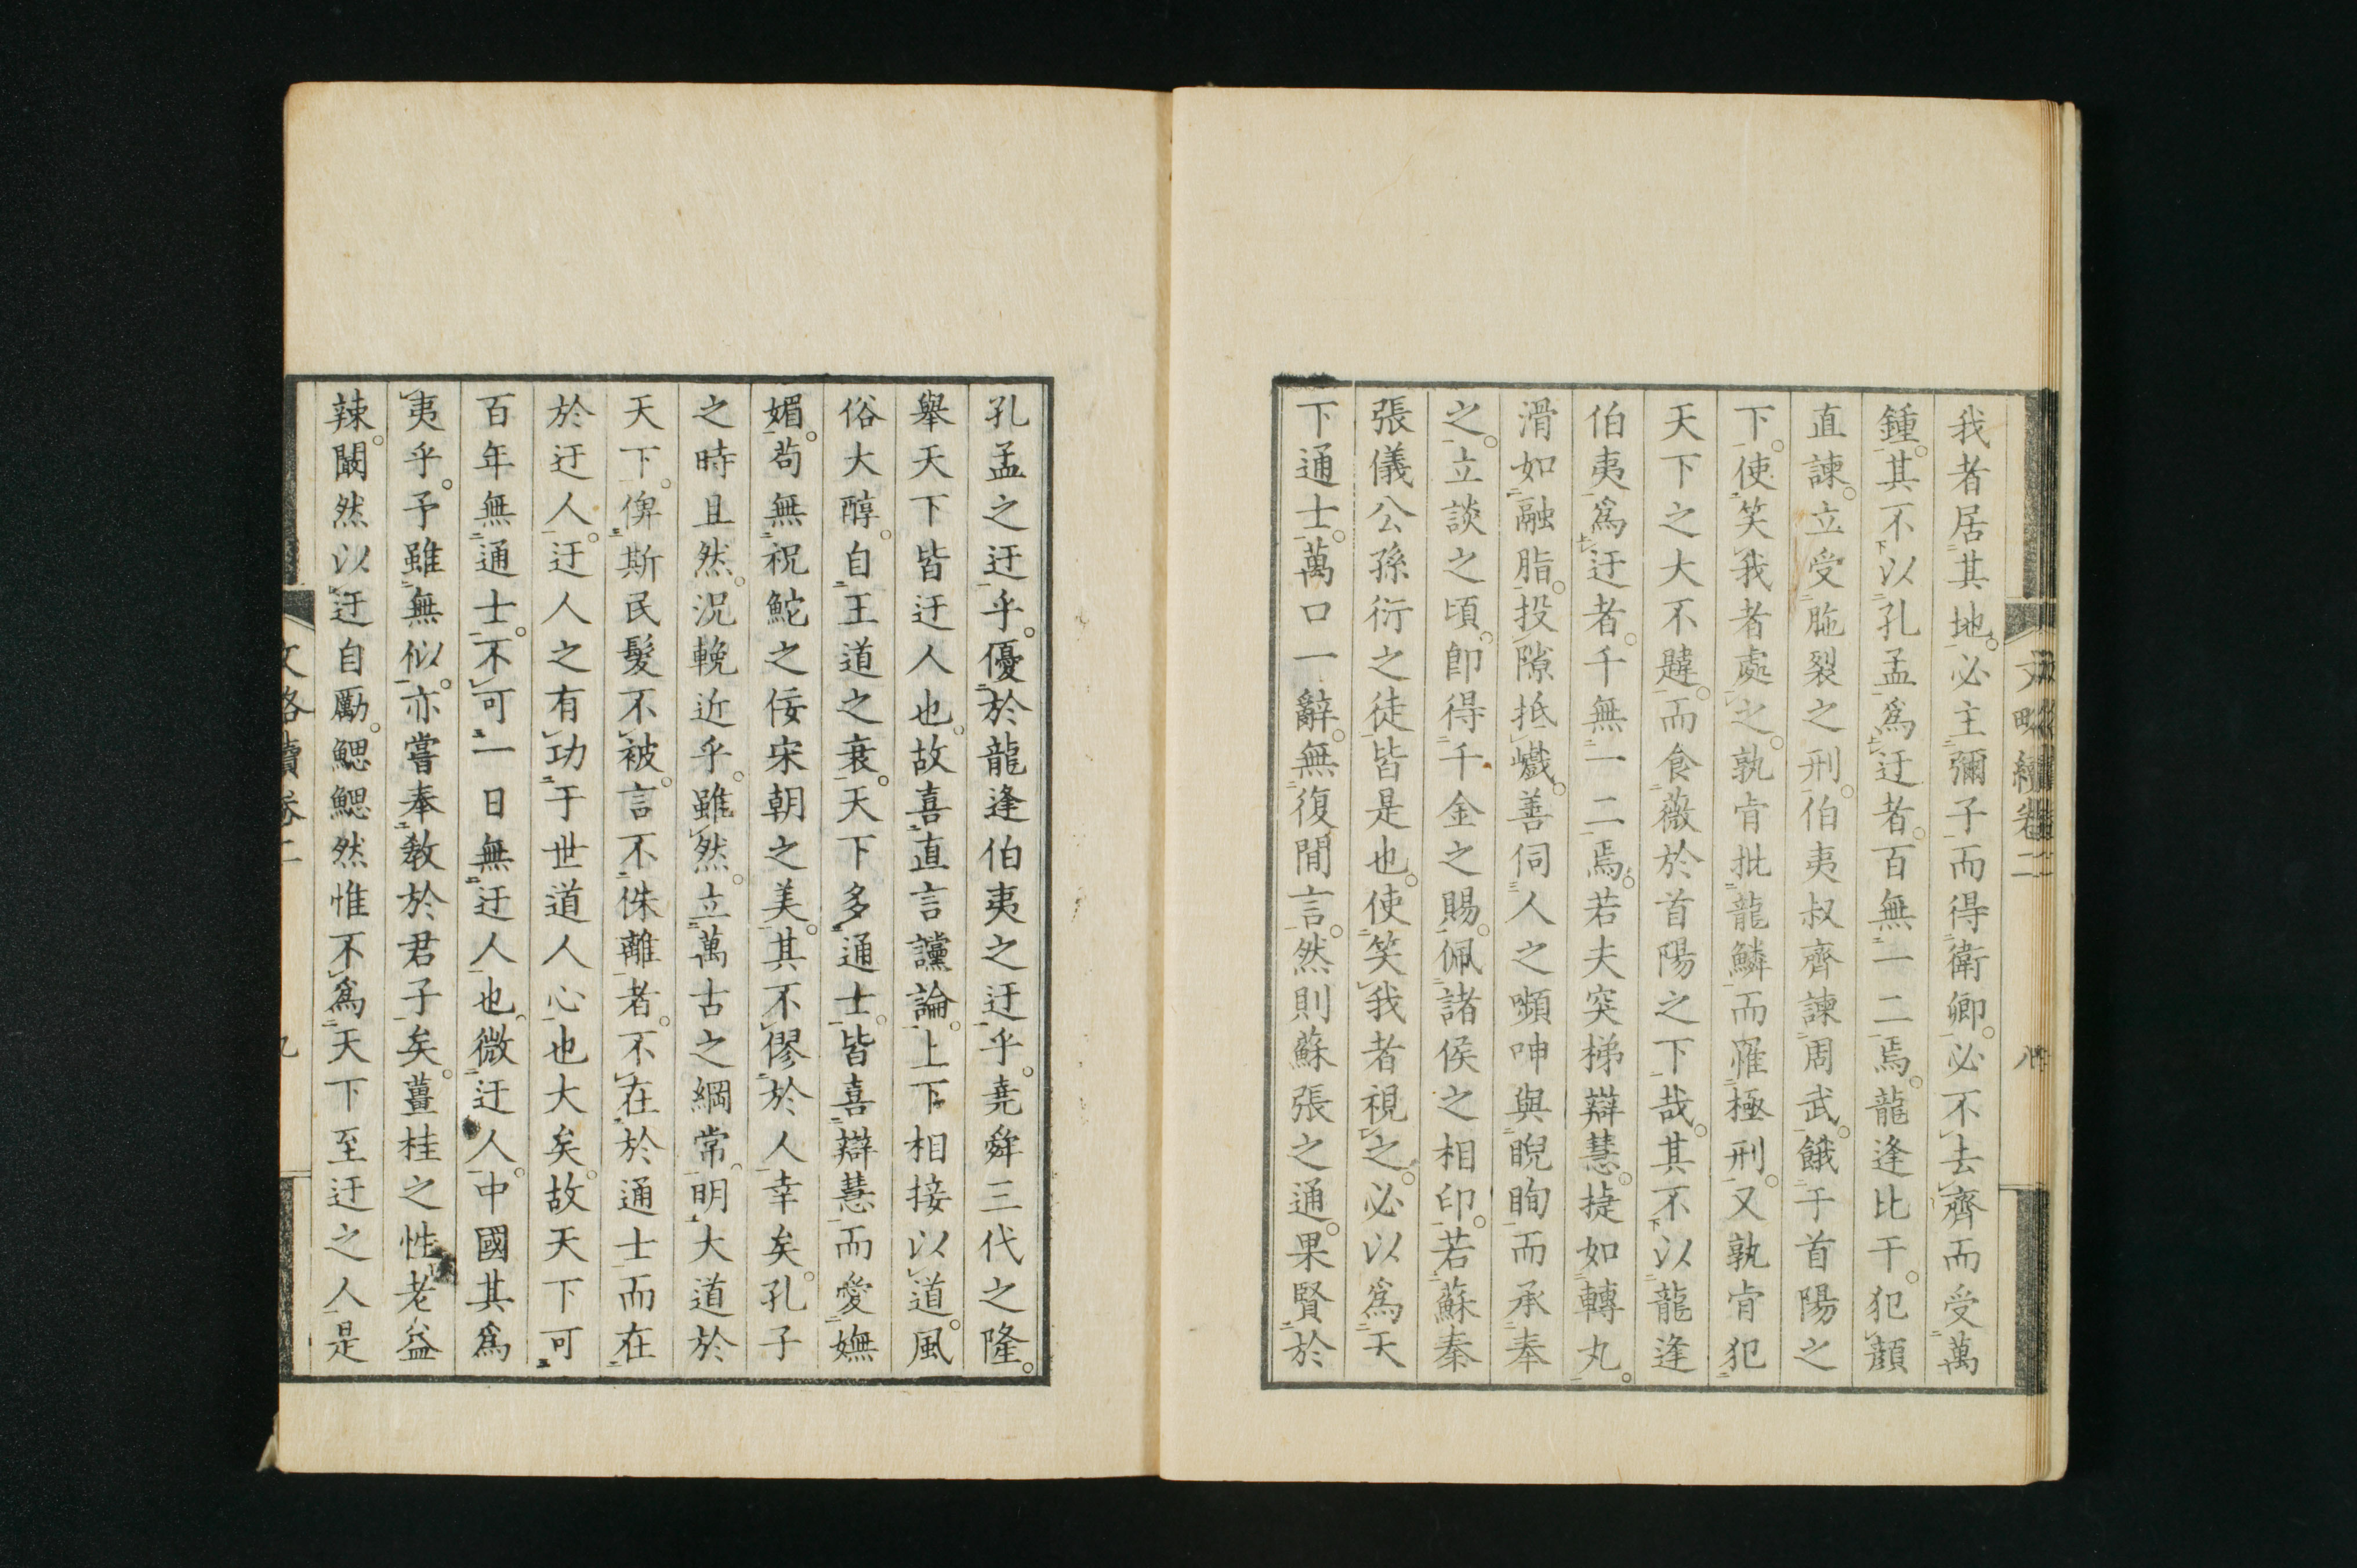 我者居其地。必主彌子而得衛卿。必不去齊而受萬
鍾。其不以孔孟爲迂者。百無一二焉。龍逢比干。犯顏
直諫。立受胣裂之刑。伯夷叔齊諫周武。餓于首陽之
下。使笑我者處之。孰肯批龍鱗而罹極刑。又孰肯犯
天下之大不韙。而食薇於首陽之下哉。其不以龍逢
伯夷爲迂者。千無一二焉。若夫突梯辯慧。捷如轉丸。
滑如融脂。投隙抵巇。善伺人之嚬呻與睨眴而承奉
之。立談之頃。卽得千金之賜。佩諸侯之相印。若蘇秦
張儀公孫衍之徒。皆是也。使笑我者視之。必以爲天
下通士。萬口一辭。無復間言。然則蘇張之通。果賢於
文略續卷二 八
孔孟之迂乎。優於龍逢伯夷之迂乎。堯舜三代之隆。
舉天下皆迂人也。故喜直言讜論。上下相接以道。風
俗大醇。自王道之衰。天下多通士。皆喜辯慧而愛嫵
媚。苟無祝鮀之佞宋朝之美。其不僇於人幸矣。孔子
之時且然。況輓近乎。雖然。立萬古之綱常。明大道於
天下。俾斯民髮不被。言不侏離者。不在於通士而在
於迂人。迂人之有功于世道人心也大矣。故天下可
百年無通士。不可一日無迂人也。微迂人。中國其爲
夷乎。予雖無似。亦嘗奉敎於君子矣。薑桂之性老益
辣。闞然以迂自勵。鰓鰓然惟不爲天下至迂之人是
文略續卷二 九